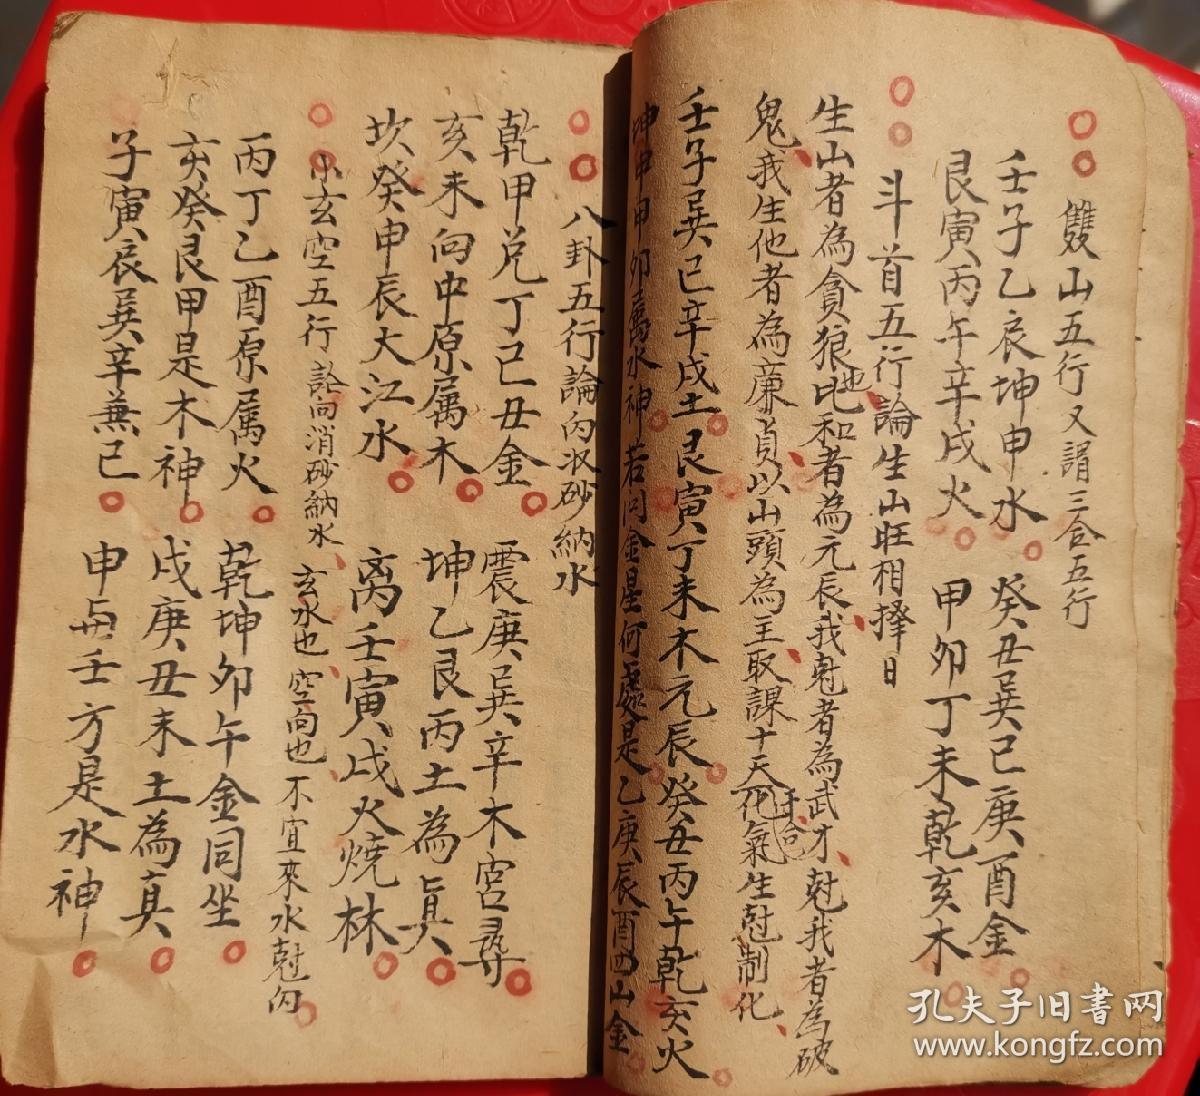 雙山五行又謂三合五行
壬子乙辰坤申水 癸丑巽巳庚酉金
艮寅丙午辛戌火 甲卯丁未乾亥木
斗首五行論生山旺相擇日
生山者為貪狼也比和者為元辰我尅者為武才尅我者為破
鬼我生他者為廉貞以山頭為主取課十天干合化氣生尅制化
壬子巽巳辛戌土艮寅丁未木元辰癸丑丙午乾亥火
坤申甲卯屬水神若问金星何處是乙庚辰酉四山金
八卦五行論向收砂納水
乾甲兑丁巳丑金 震庚巽辛木宫尋
亥未向中原属木 坤乙艮丙土為真
坎癸申辰大江水 离壬寅戌火燒林
小玄空五行論向消砂納水 玄水也空向也不宜來水尅向
丙丁乙酉原属火 乾坤卯午金同坐
亥癸艮甲是木神 戌庚丑未土為真
子寅辰巽辛兼巳 申与壬方是水神
孔夫子旧書网
www.kongfz.com